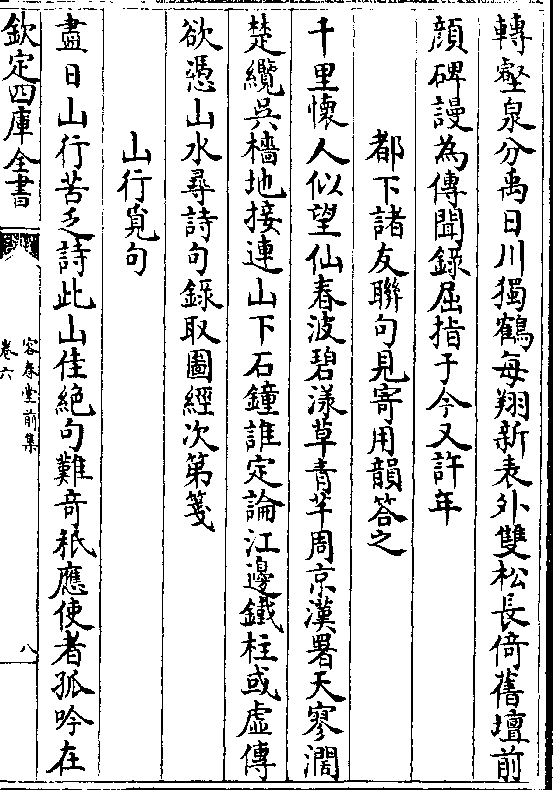 轉壑泉分禹日川獨鶴每翔新表外雙松長倚舊壇前
顔碑謾為傳聞錄屈指于今又許年
都下諸友聯句見寄用韻答之
千里懷人似望仙春波碧漾草青芊周京漢署天寥濶
楚纜吳檣地接連山下石鐘誰定論江邊鐵柱或虛傳
欲憑山水尋詩句錄取圖經次第箋
山行覓句
盡日山行苦乏詩此山佳絶句難奇秖應使者孤吟在
欽定四庫全書
容春堂前集
卷六
八